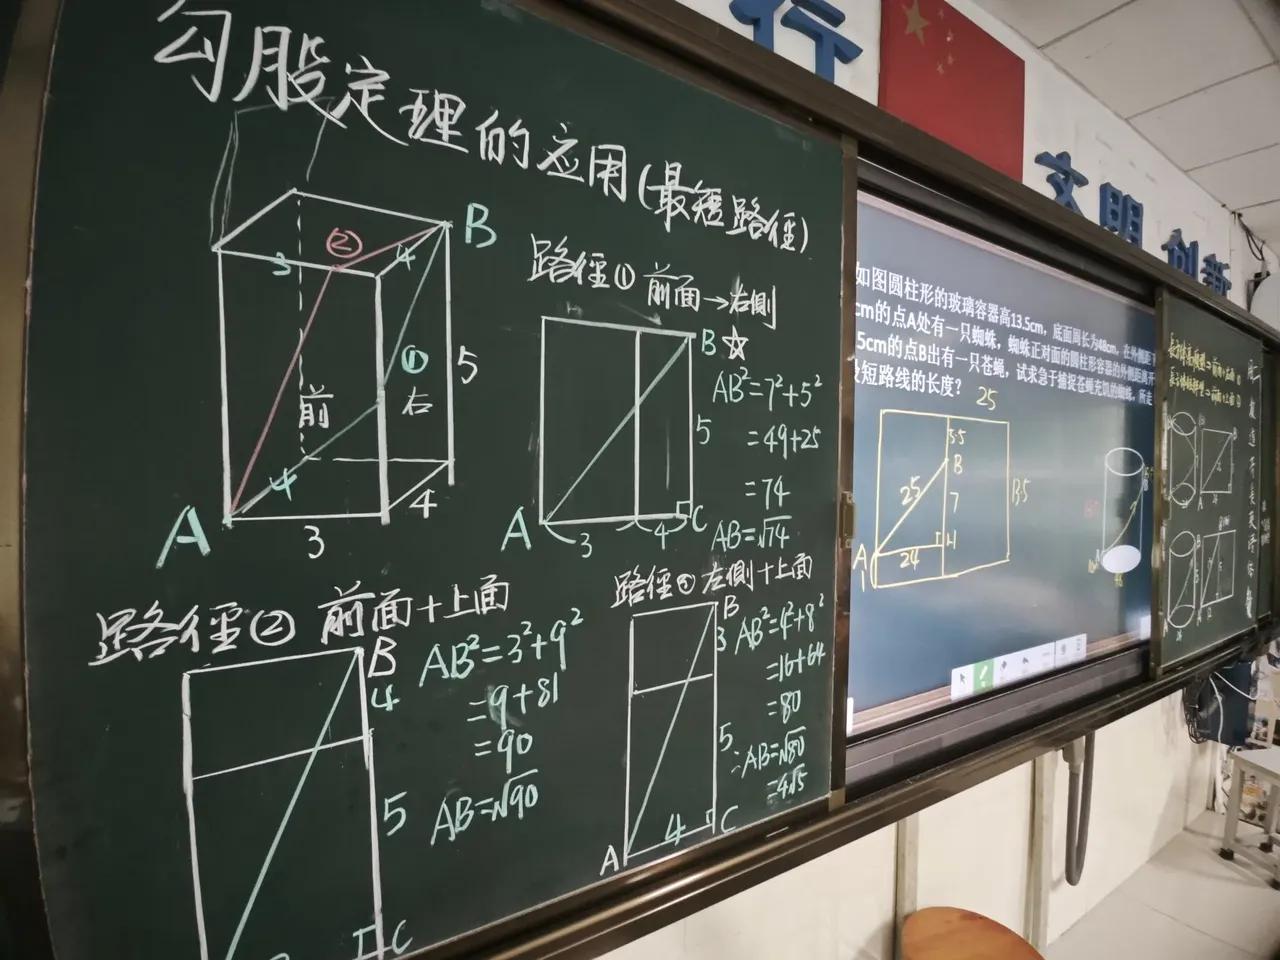 勾股定理的应用(最短路径)
B
② 
3
4
①
5
前
右
4
A
3
4
路径① 前面→右侧
B ☆
5
A
3
4
C
AB²=7²+5²
=49+25
=74
AB=√74
路径② 前面+上面
B
4
5
C
AB²=3²+9²
=9+81
=90
AB=√90
左侧+上面
B
3
5
4
A
C
AB²=4²+8²
=16+64
=80
∴AB=√80
=4√5
行
文明
创新
如图圆柱形的玻璃容器高13.5cm，底面周长为48cm，在外侧距下
cm的点A处有一只蜘蛛，蜘蛛正对面的圆柱形容器的外侧距离开
5cm的点B出有一只苍蝇，试求急于捕捉苍蝇充饥的蜘蛛，所走
最短路线的长度？
25
5.5
B
25
7
13.5
A
24
H
1